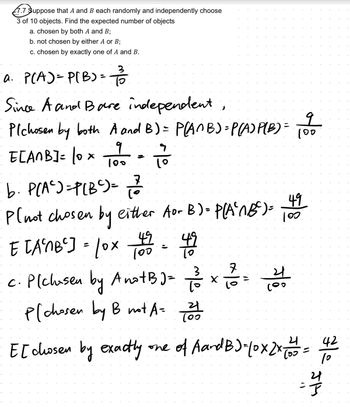 7.7 Suppose that A and B each randomly and independently choose
3 of 10 objects. Find the expected number of objects
a. chosen by both A and B;
b. not chosen by either A or B;
c. chosen by exactly one of A and B.
a. P(A) = P(B) = 3/10
Since A and B are independent,
P(chosen by both A and B) = P(A∩B) = P(A)P(B) = 9/100
E[A∩B] = 10 × 9/100 = 9/10
b. P(Aᶜ) = P(Bᶜ) = 7/10
P(not chosen by either A or B) = P(Aᶜ∩Bᶜ) = 49/100
E[Aᶜ∩Bᶜ] = 10 × 49/100 = 49/10
c. P(chosen by A not B) = 3/10 × 7/10 = 21/100
P(chosen by B not A = 21/100
E[chosen by exactly one of A and B) = 10×2×21/100 = 42/10
= 21/5